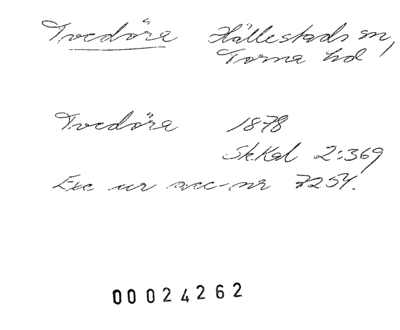 Tvedöra Hällestads sn,
Torna hd
Tvedöra 1878
Sk.Kal 2:369
Exc ur acc-nr 7254.
00024262